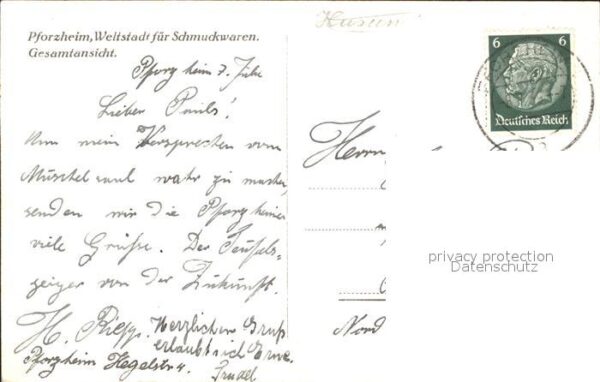 Pforzheim, Weltstadt für Schmuckwaren.
Gesamtansicht.
Pforzheim 7. Juli
Lieber
Um mein Versprechen vom
wahr zu machen,
senden wir die Pforzheimer
viele Grüße. Der Teufels-
geiger von der Zukunft.
H. Herzlichen Gruß
erlaubt sich
Pforzheim Hegelstr 4.
Husum
6 6
Deutsches Reich
Herrn
Nord
privacy protection
Datenschutz